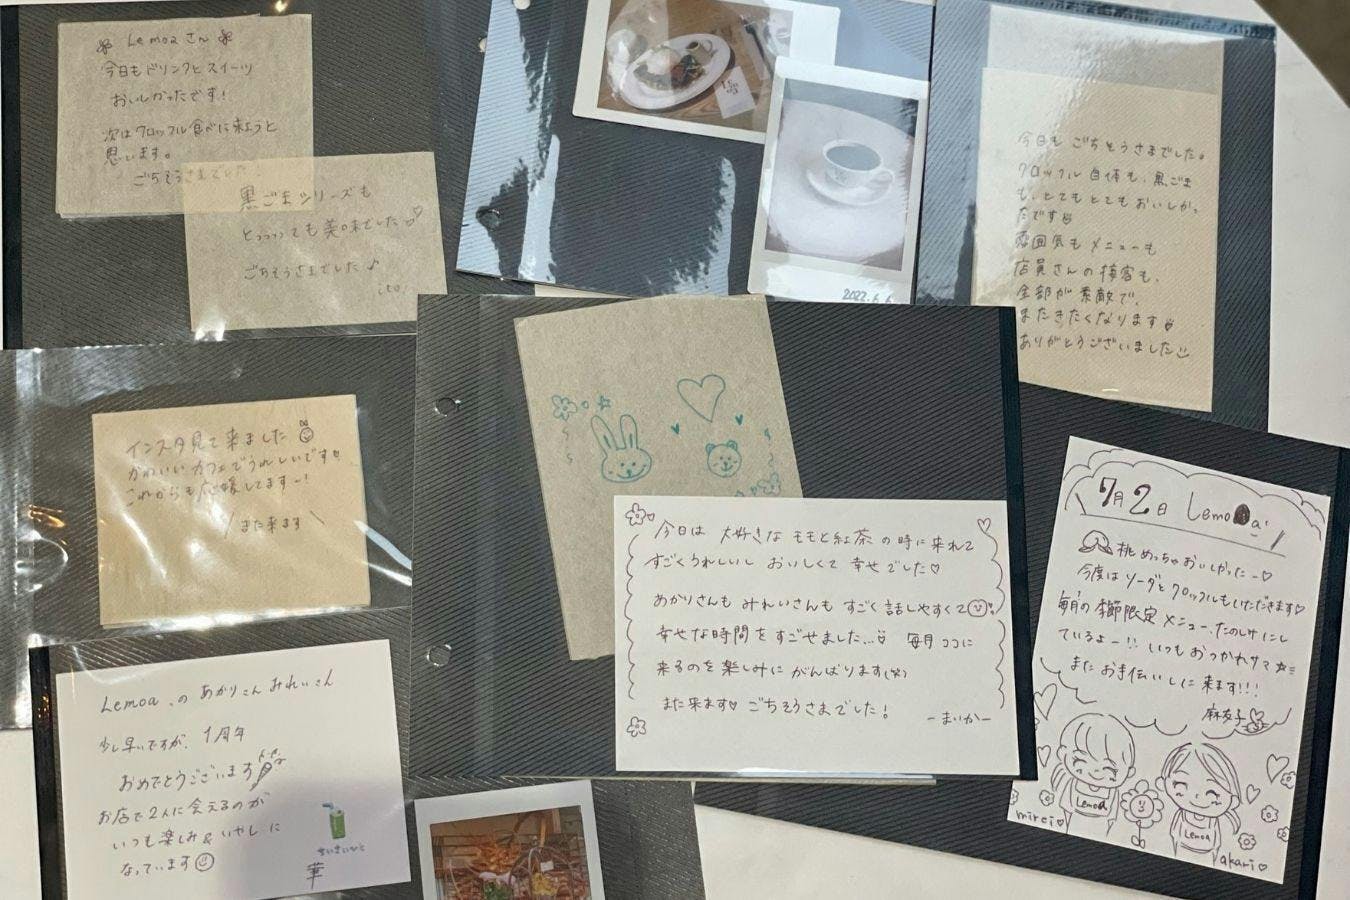 Lemoaさん
今日もドリンクとスイーツ
おいしかったです!
次はクロッフル食べに来ようと
思います。
ごちそうさまでした
黒ごまシリーズも
とっっっても美味でした
ごちそうさまでした♪
ito.
2022.6.6
今日も ごちそうさまでした。
クロッフル自体も、黒ごま
も、とてもとてもおいしかっ
たです
雰囲気も メニューも
店員さんの接客も、
全部が素敵で、
またきたくなります
ありがとうございました
インスタ見て来ました
かわいいカフェでうれしいです
これからも応援してますー!
\また来ます/
今日は 大好きな ももと紅茶 の時に来れて
すごくうれしいし おいしくて 幸せでした♡
あかりさんも みれいさんも すごく話しやすくて
幸せな時間をすごせました... 毎月ココに
来るのを楽しみに がんばります
また来ます♡ ごちそうさまでした!
ーまいかー
7月2日 Lemoa
桃めっちゃおいしかったー♡
今度はソーダとクロッフルもいただきます♡
毎月の季節限定メニュー、たのしみにし
ているよー!! いつもおつかれサマ
またお手伝いしに来ます!!!
麻友子
Lemoa
mirei♡
Lemoa
akari♡
Lemoa、の あかりさん みれいさん
少し早いですが、1周年
おめでとうございます
お店で2人に会えるのが
いつも楽しみ&いやしに
なっています
華